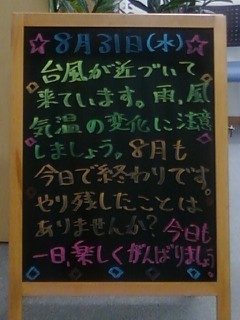 ☆8月31日(水)☆
台風が近づいて
来ています。雨、風
気温の変化に注意
しましょう。8月も
今日で終わりです。
やり残したことは
ありませんか?今日も
一日、楽しくがんばりましょう。